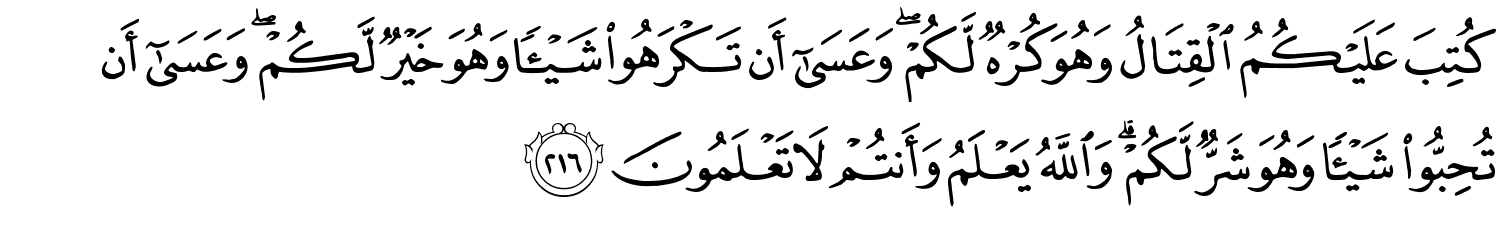 كُتِبَ عَلَيْكُمُ ٱلْقِتَالُ وَهُوَ كُرْهٌ لَّكُمْ ۖ وَعَسَىٰٓ أَن تَكْرَهُوا۟ شَيْـًٔا وَهُوَ خَيْرٌ لَّكُمْ ۖ وَعَسَىٰٓ أَن
تُحِبُّوا۟ شَيْـًٔا وَهُوَ شَرٌّ لَّكُمْ ۗ وَٱللَّهُ يَعْلَمُ وَأَنتُمْ لَا تَعْلَمُونَ ٢١٦